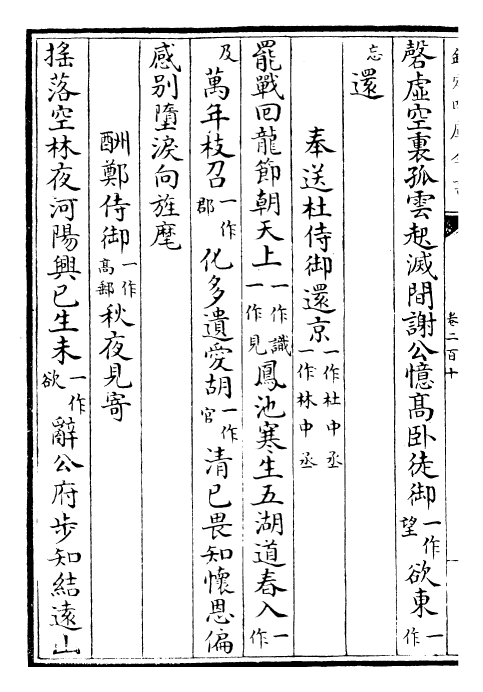 欽定四庫全書
卷二百十
磬虛空裏孤雲起滅間謝公憶高卧徒御一作望欲東一作
忘還
奉送杜侍御還京一作杜中丞一作林中丞
罷戰回龍節朝天上一作識一作見鳳池寒生五湖道春入一作
及萬年枝召一作郡化多遺愛胡一作官清已畏知懷恩偏
感别墮淚向旌麾
酬鄭侍御一作高郵秋夜見寄
摇落空林夜河陽興已生未一作欲辭公府步知結遠山